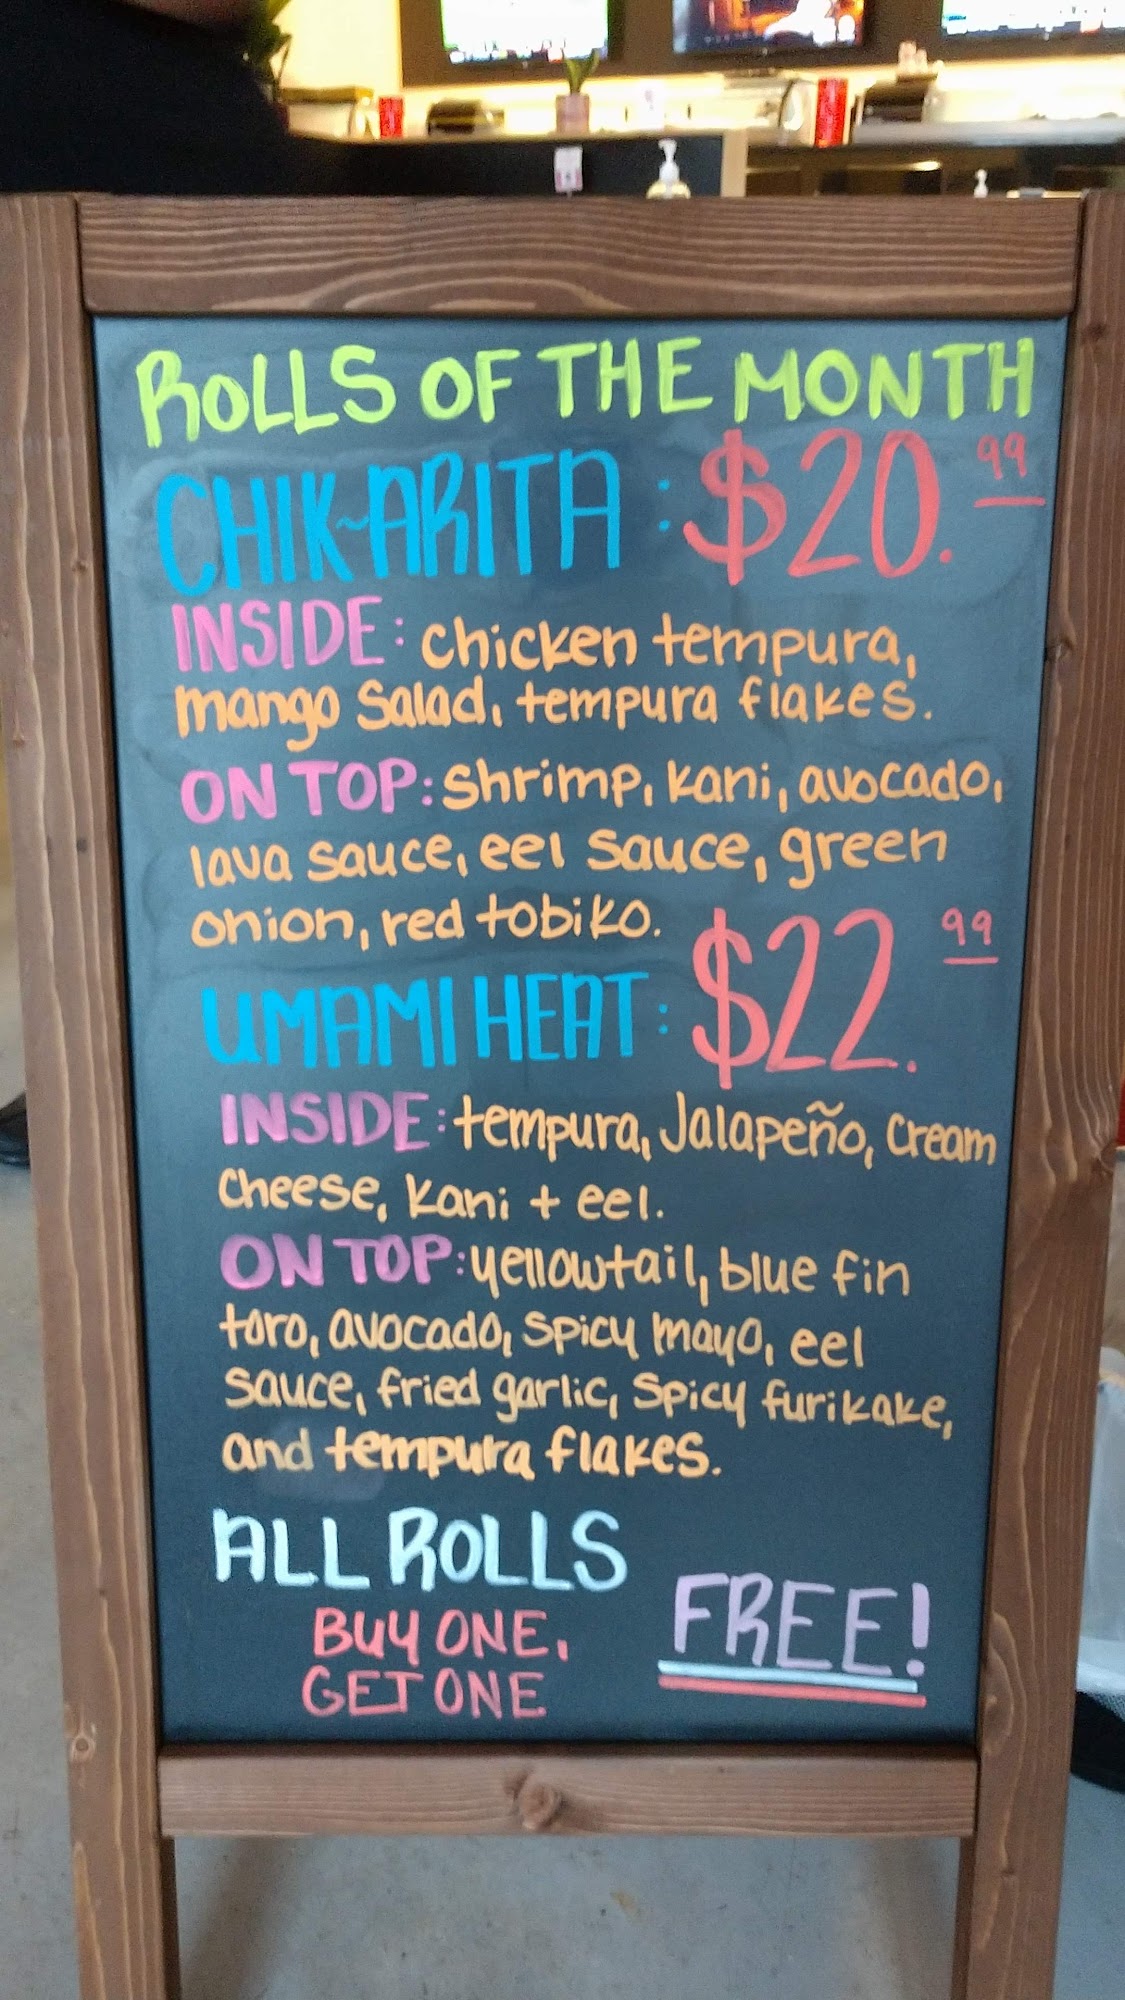 ROLLS OF THE MONTH
CHIK~ARITA: $20.99
INSIDE: chicken tempura,
mango salad, tempura flakes.
ON TOP: shrimp, kani, avocado,
lava sauce, eel sauce, green
onion, red tobiko.
UMAMI HEAT: $22.99
INSIDE: tempura, Jalapeño, cream
cheese, kani + eel.
ON TOP: yellowtail, blue fin
toro, avocado, spicy mayo, eel
sauce, fried garlic, spicy furikake,
and tempura flakes.
ALL ROLLS
BUY ONE,
GET ONE
FREE!